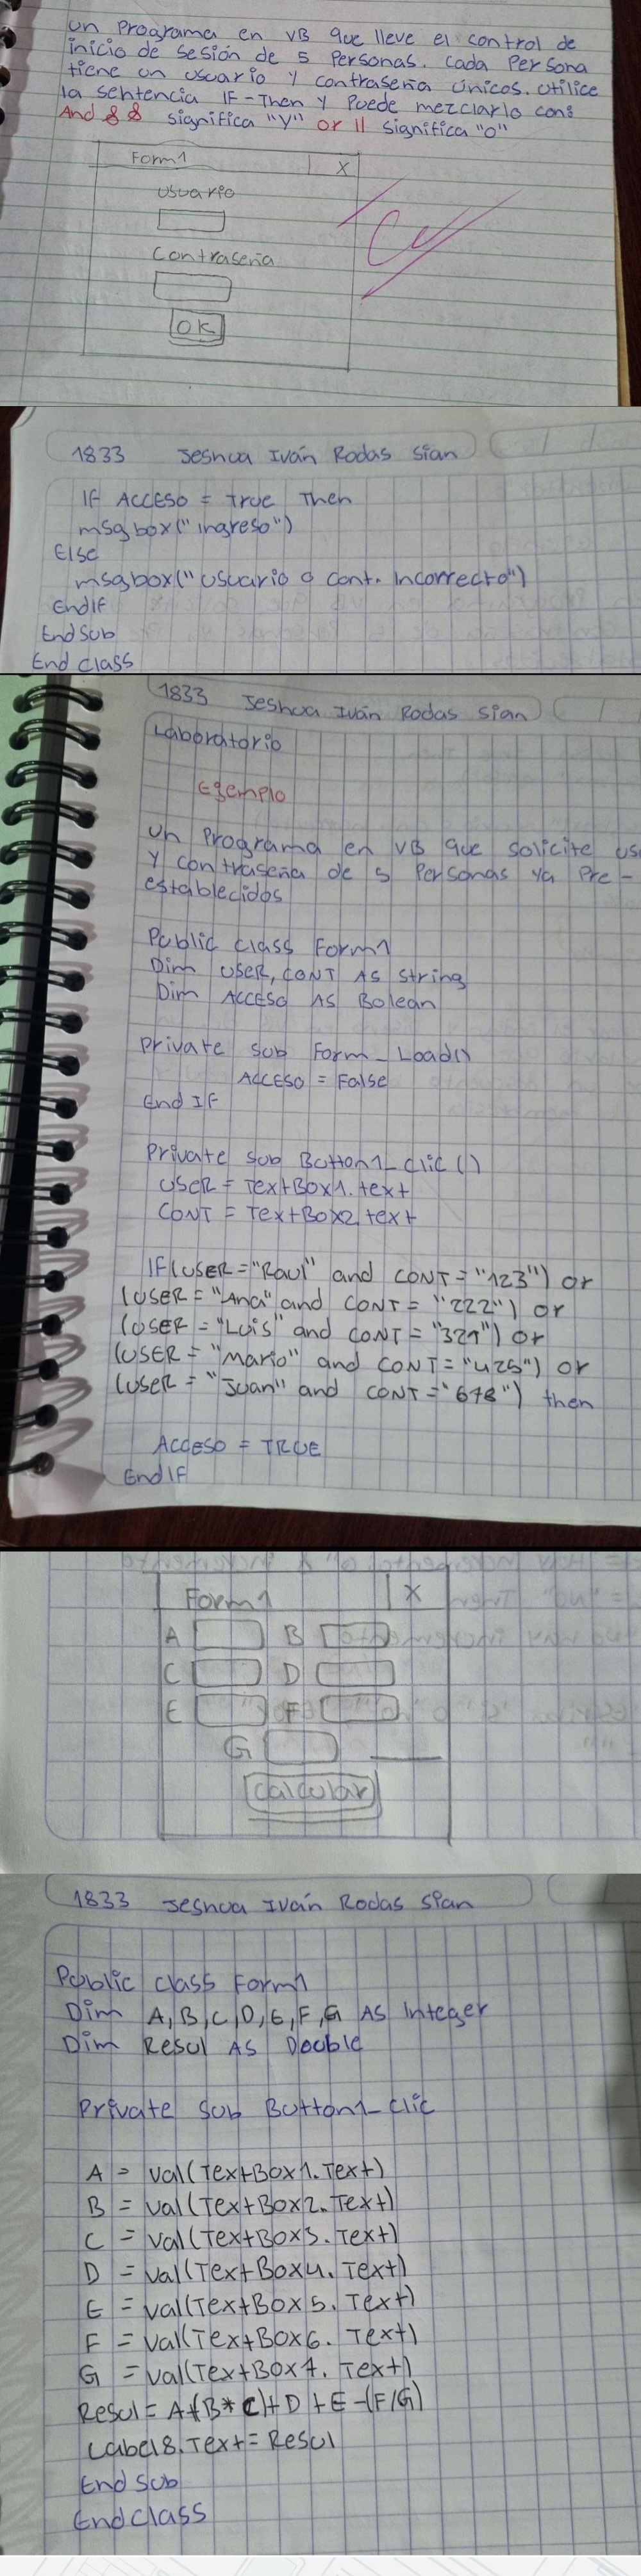 un Programa en VB que lleve el control de
inicio de sesión de 5 Personas. Cada Persona
tiene un usuario y contraseña únicos. utilice
la sentencia IF-Then y Puede mezclarlo con:
And && significa "y" or || significa "o"
Form1 X
usuario
Contraseña
OK
1833 Jeshua Iván Rodas Sian
IF ACCESO = True Then
msgbox("ingreso")
Else
msgbox("usuario o cont. Incorrecto")
EndIF
EndSub
End class
1833 Jeshua Iván Rodas Sian
Laboratorio
Ejemplo
un Programa en VB que solicite us
y contraseña de 5 Personas ya Pre-
establecidos
Public class Form1
Dim USER, CONT AS String
Dim ACCESO AS Bolean
Private Sub Form_Load()
ACCESO = False
End IF
Private Sub Button1_clic()
USER = TextBox1.text
CONT = TextBox2.text
IF(USER="Raul" and CONT="123") or
(USER="Ana" and CONT="222") or
(USER="Luis" and CONT="321") or
(USER="Mario" and CONT="425") or
(USER="Juan" and CONT="678") then
Acceso = TRUE
EndIF
Form1 X
A B
C D
E F
G
Calcular
1833 Jeshua Iván Rodas Sian
Public class Form1
Dim A,B,C,D,E,F,G AS Integer
Dim Resul AS Double
Private Sub Button1_clic
A = val(TextBox1.Text)
B = val(TextBox2.Text)
C = val(TextBox3.Text)
D = val(TextBox4.Text)
E = val(TextBox5.Text)
F = val(TextBox6.Text)
G = val(TextBox7.Text)
Resul = A+(B*C)+D+E-(F/G)
Label8.Text = Resul
End Sub
End class